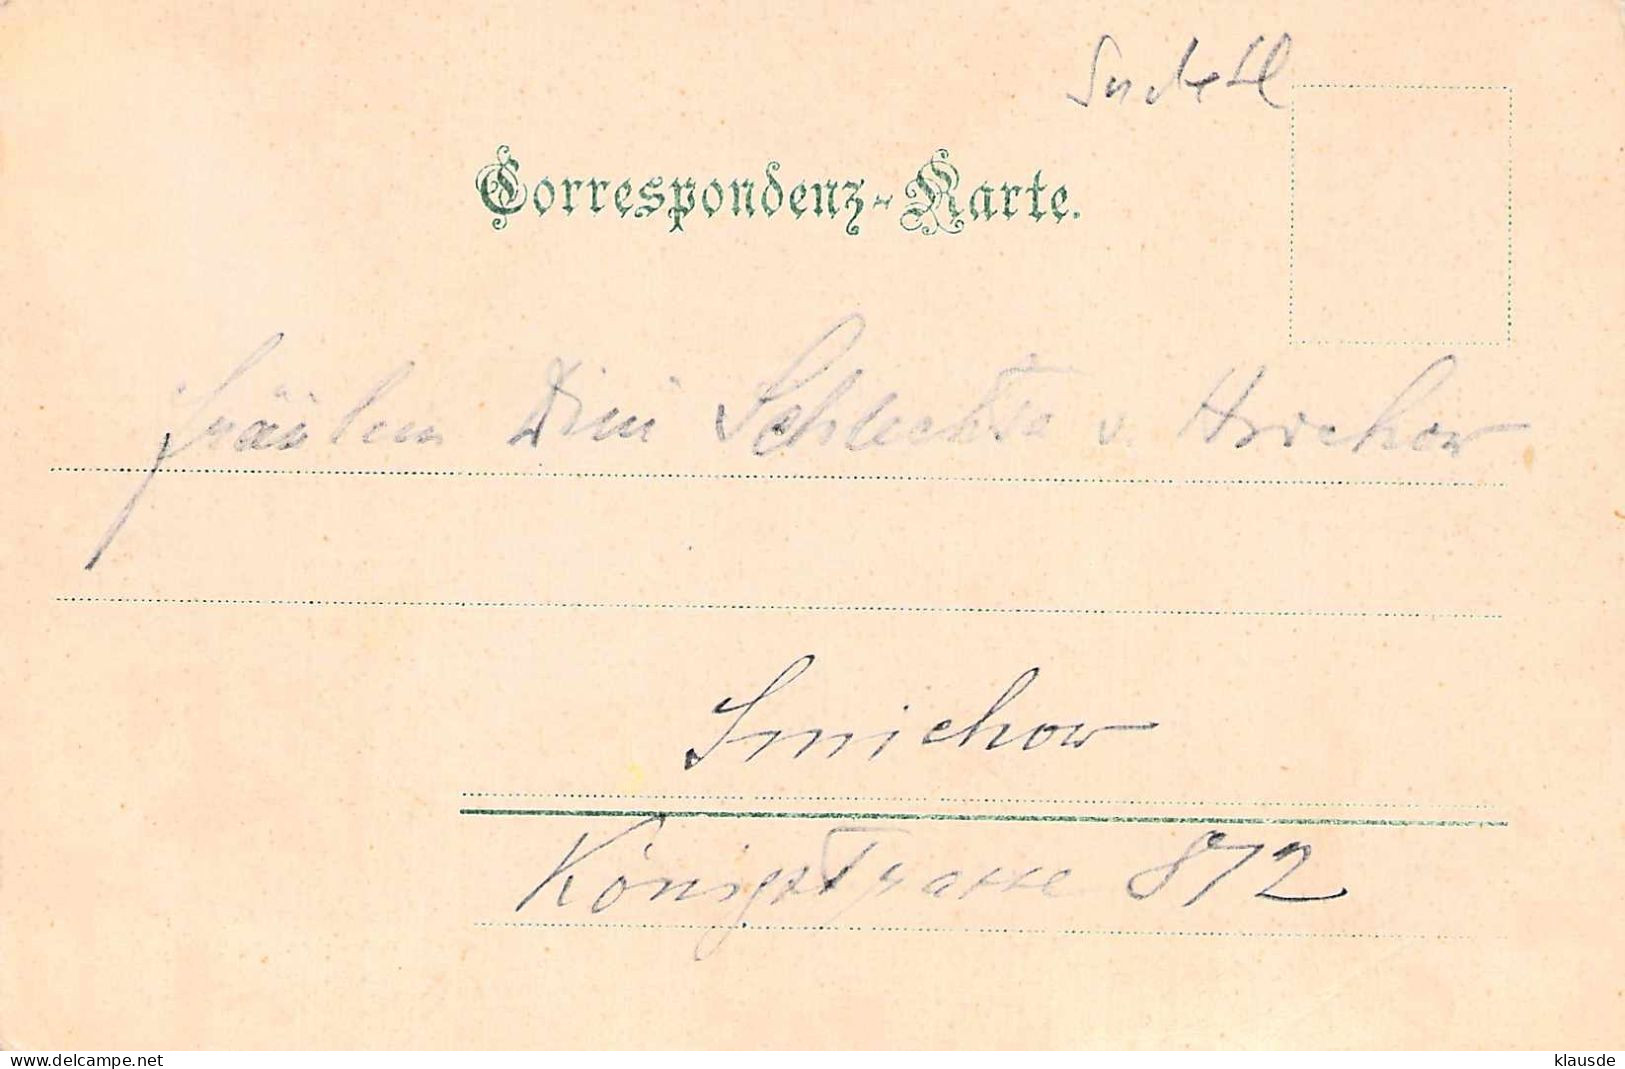 Correspondenz-Karte.
Fräulein Dini Schlechta v. Hrochow
Smichow
Königstrasse 872
delcampe.net
klausde